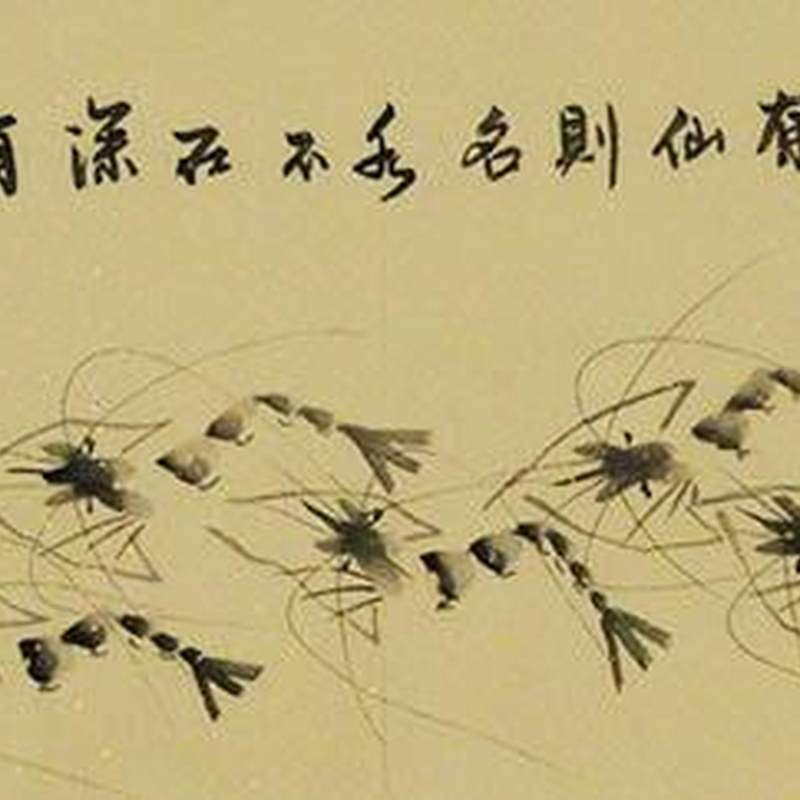 有仙則名水不在深有